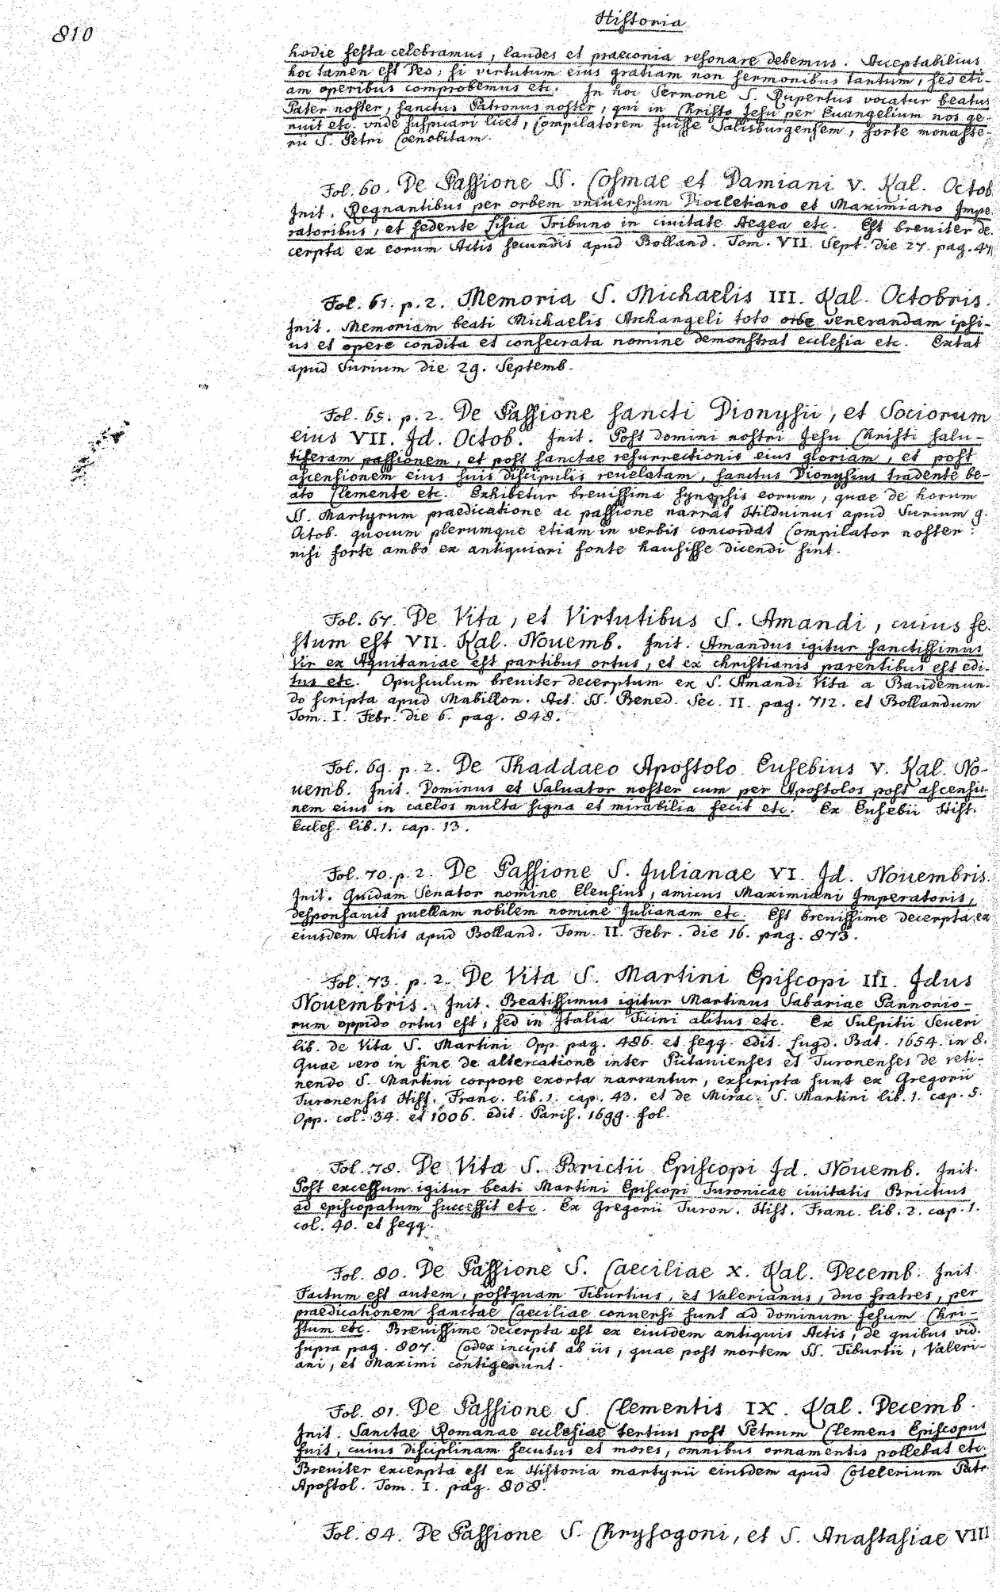 810
Historia
hodie festa celebramus, laudes et praeconia resonare debemus. Acceptabilius
hoc tamen est Deo, si virtutum eius gratiam non sermonibus tantum, sed eti-
am operibus comprobemus etc. In hoc Sermone S. Rupertus vocatur beatus
Pater noster, sanctus Patronus noster, qui in Christo Jesu per Euangelium nos ge-
nuit etc. vnde suspicari licet, Compilatorem fuisse Salisburgensem, forte monaste-
rii S. Petri Coenobitam.
Fol. 60. De Passione SS. Cosmae et Damiani V. Kal. Octob
Init. Regnantibus per orbem vniuersum Diocletiano et Maximiano Impe-
ratoribus, et sedente Lisia Tribuno in ciuitate Aegea etc. Est breuiter de-
cerpta ex eorum Actis secundis apud Bolland. Tom. VII. Sept. die 27. pag. 47
Fol. 61. p. 2. Memoria S. Michaelis III. Kal. Octobris.
Init. Memoriam beati Michaelis Archangeli toto orbe venerandam ipsi-
us et opere condita et consecrata nomine demonstrat ecclesia etc. Extat
apud Surium die 29. Septemb.
Fol. 65. p. 2. De Passione sancti Dionysii, et Sociorum
eius VII. Id. Octob. Init. Post domini nostri Jesu Christi salu-
tiferam passionem, et post sanctae resurrectionis eius gloriam, et post
ascensionem eius suis discipulis reuelatam, sanctus Dionysius tradente be-
ato Clemente etc. Exhibetur breuissima synopsis eorum, quae de horum
SS. Martyrum praedicatione ac passione narrat Hilduinus apud Surium 9.
Octob. quocum plerumque etiam in verbis concordat Compilator noster:
nisi forte ambo ex antiquiori fonte hausisse dicendi sint.
Fol. 67. De Vita, et Virtutibus S. Amandi, cuius fe-
stum est VII. Kal. Nouemb. Init. Amandus igitur sanctissimus
Vir ex Aquitaniae est partibus ortus, et ex christianis parentibus est edi-
tus etc. Opusculum breuiter decerptum ex S. Amandi Vita a Baudemun-
do scripta apud Mabillon. Act. SS. Bened. Sec. II. pag. 712. et Bollandum
Tom. I. Febr. die 6. pag. 848.
Fol. 69. p. 2. De Thaddaeo Apostolo Eusebius V. Kal. No-
uemb. Init. Dominus et Saluator noster cum per Apostolos post ascensio-
nem eius in caelos multa signa et mirabilia fecit etc. Ex Eusebii Hist.
Eccles. lib. 1. cap. 13.
Fol. 70. p. 2. De Passione S. Julianae VI. Id. Nouembris.
Init. Quidam Senator nomine Eleusius, amicus Maximiani Imperatoris,
desponsauit puellam nobilem nomine Julianam etc. Est breuissime decerpta ex
eiusdem Actis apud Bolland. Tom. II. Febr. die 16. pag. 873.
Fol. 73. p. 2. De Vita S. Martini Episcopi III. Idus
Nouembris. Init. Beatissimus igitur Martinus Sabariae Pannonio-
rum oppido ortus est, sed in Italia Ticini alitus etc. Ex Sulpitii Seueri
lib. de Vita S. Martini Opp. pag. 486. et seqq. edit. Lugd. Bat. 1654. in 8.
Quae vero in fine de altercatione inter Pictauienses et Turonenses de reti-
nendo S. Martini corpore exorta narrantur, exscripta sunt ex Gregorii
Turonensis Hist. Franc. lib. 1. cap. 43. et de Mirac. S. Martini lib. 1. cap. 5.
Opp. col. 34. et 1006. edit. Paris. 1699. fol.
Fol. 78. De Vita S. Brictii Episcopi Id. Nouemb. Init.
Post excessum igitur beati Martini Episcopi Turonicae ciuitatis Brictius
ad episcopatum successit etc. Ex Gregorii Turon. Hist. Franc. lib. 2. cap. 1.
col. 40. et seqq.
Fol. 80. De Passione S. Caeciliae X. Kal. Decemb. Init.
Factum est autem, postquam Tiburtius, et Valerianus, duo fratres, per
praedicationem sanctae Caeciliae conuersi sunt ad dominum Jesum Chri-
stum etc. Breuissime decerpta est ex eiusdem antiquis Actis, de quibus vid.
supra pag. 807. Codex incipit ab iis, quae post mortem SS. Tiburtii, Valeri-
ani, et Maximi contigerunt.
Fol. 81. De Passione S. Clementis IX. Kal. Decemb.
Init. Sanctae Romanae ecclesiae tertius post Petrum Clemens Episcopus
fuit, cuius disciplinam secutus et mores, omnibus ornamentis pollebat etc.
Breuiter excerpta est ex Historia martyrii eiusdem apud Cotelerium Patr.
Apostol. Tom. I. pag. 808.
Fol. 84. De Passione S. Chrysogoni, et S. Anastasiae VIII